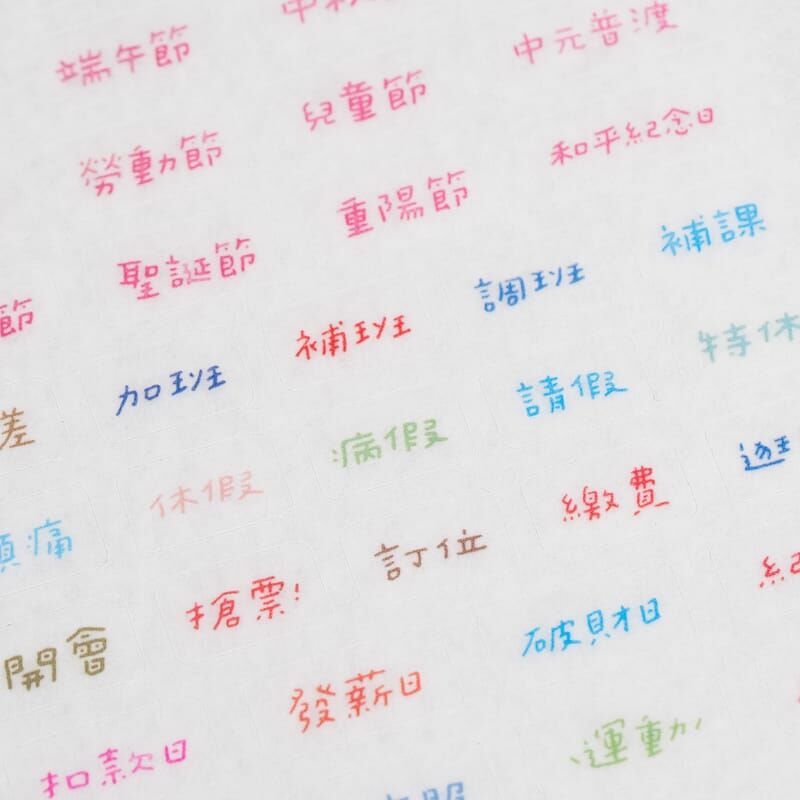 端午節
中元普渡
勞動節
兒童節
和平紀念日
聖誕節
重陽節
節
補班
調班
補課
差
加班
病假
請假
特休
休假
訂位
繳費
頭痛
搶票!
破財日
開會
發薪日
運動
扣款日